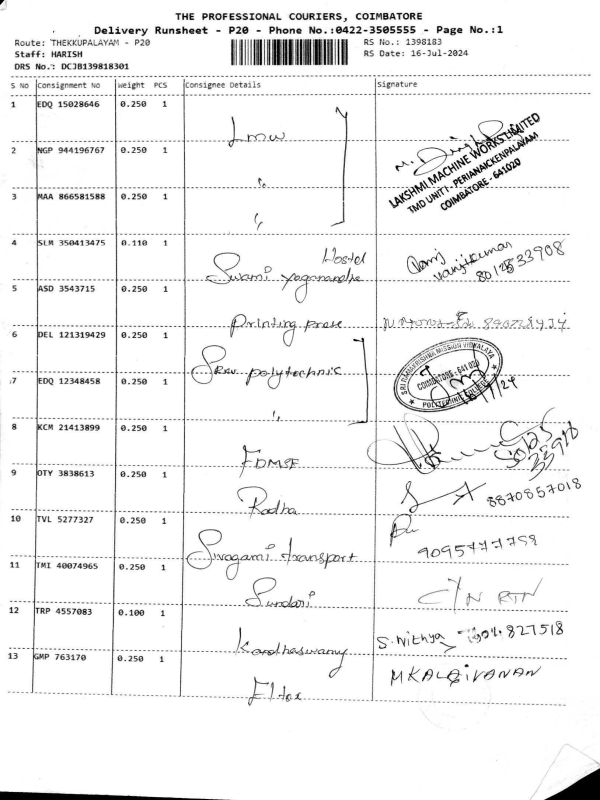 THE PROFESSIONAL COURIERS, COIMBATORE
Delivery Runsheet - P20 - Phone No.:0422-3505555 - Page No.:1
Route: THEKKUPALAYAM - P20 RS No.: 1398183
Staff: HARISH RS Date: 16-Jul-2024
DRS No.: DCJB139818301
S No Consignment No Weight PCS Consignee Details Signature
1 EDQ 15028646 0.250 1
Lmw
2 NGP 944196767 0.250 1
"
LAKSHMI MACHINE WORKS LIMITED
TMD UNIT I - PERIANAICKENPALAYAM
COIMBATORE - 641020
3 MAA 866581588 0.250 1
"
4 SLM 350413475 0.110 1
Hostel
Swami yoganandha
5 ASD 3543715 0.250 1
Printing press
6 DEL 121319429 0.250 1
SRKV polytechnic
SRI RAMAKRISHNA MISSION VIDYALAYA
COIMBATORE - 641 020
POLYTECHNIC COLLEGE
7 EDQ 12348458 0.250 1
"
8 KCM 21413899 0.250 1
FDMSE
9 OTY 3838613 0.250 1
Radha 8870857018
10 TVL 5277327 0.250 1
Sivagami transport
11 TMI 40074965 0.250 1
Sundari
12 TRP 4557083 0.100 1
Kandhaswamy S. Nithya
13 GMP 763170 0.250 1
Eltex MKALAIVANAN